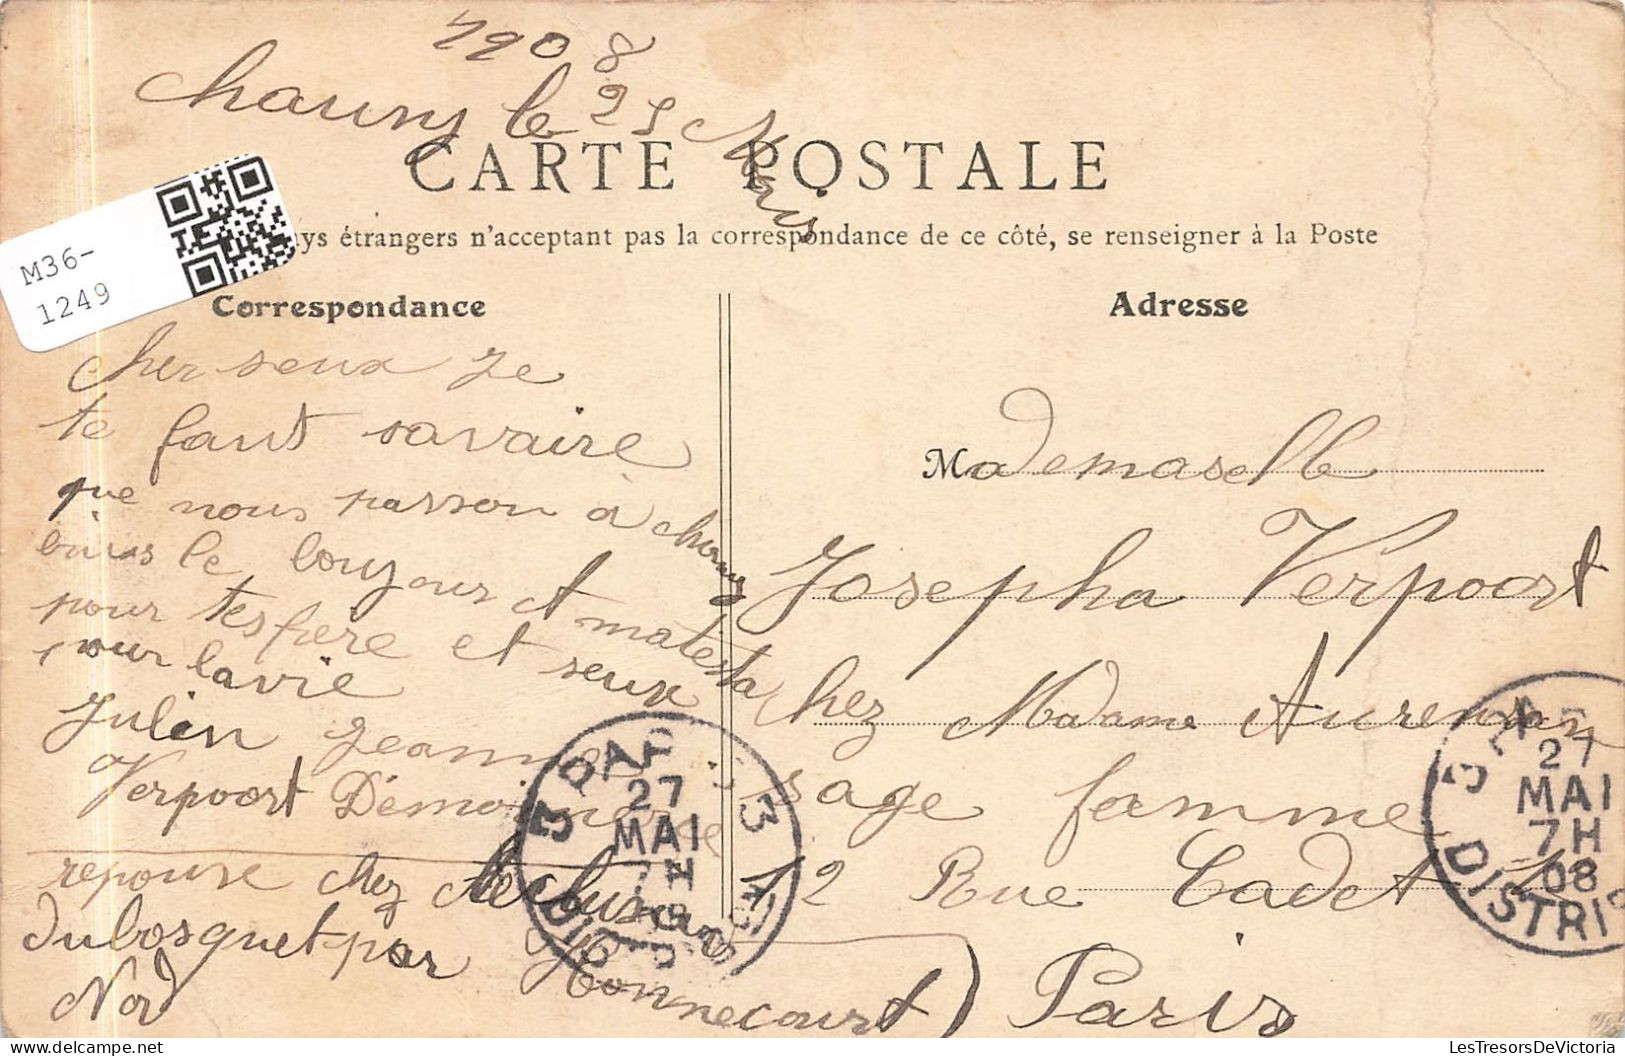 1908
chauny le 25 Mais
CARTE POSTALE
ays étrangers n'acceptant pas la correspondance de ce côté, se renseigner à la Poste
M36-
1249
Correspondance
cher seux je
te faut savaire
que nous passon à chauny
le bonjour et
pour tes frere et seux
pour la vie
Julien Jeanne
Verpoort
reponse chez
dubosquet par Honnecourt
Nord
Adresse
Mademaselle
Josepha Verpoort
chez Madame
sage famme
12 Rue Cadet
Paris
27
MAI
7H
08
DISTRI
27
MAI
LesTresorsDeVictoria